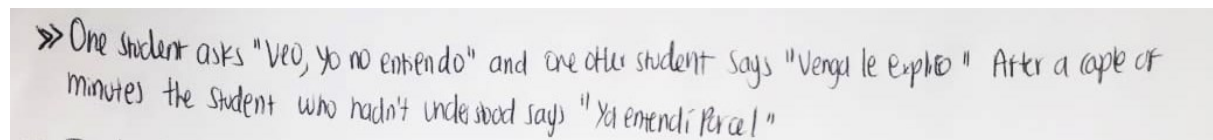 >> One student asks "Veo, yo no entiendo" and one other student says "Venga le explico" After a couple of
minutes the student who hadn't understood says "Ya entendí Parcel"